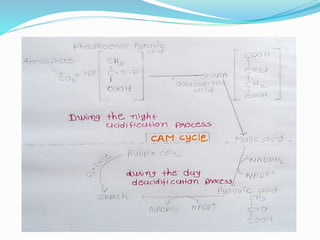 Phosphoenol Pyruvic
acid
COOH
CH2
C-O-P
COOH
CO2 + PEP
OAA
oxaloacetic
acid
C=O
CH2
COOH
During the night
acidification process
CAM cycle
Malic acid
RuBP + CO2
NADPH2
NADP+
C3 cycle
during the day
deacidification process
Starch
NADP+
Pyruvic acid
CH3
C=O
COOH